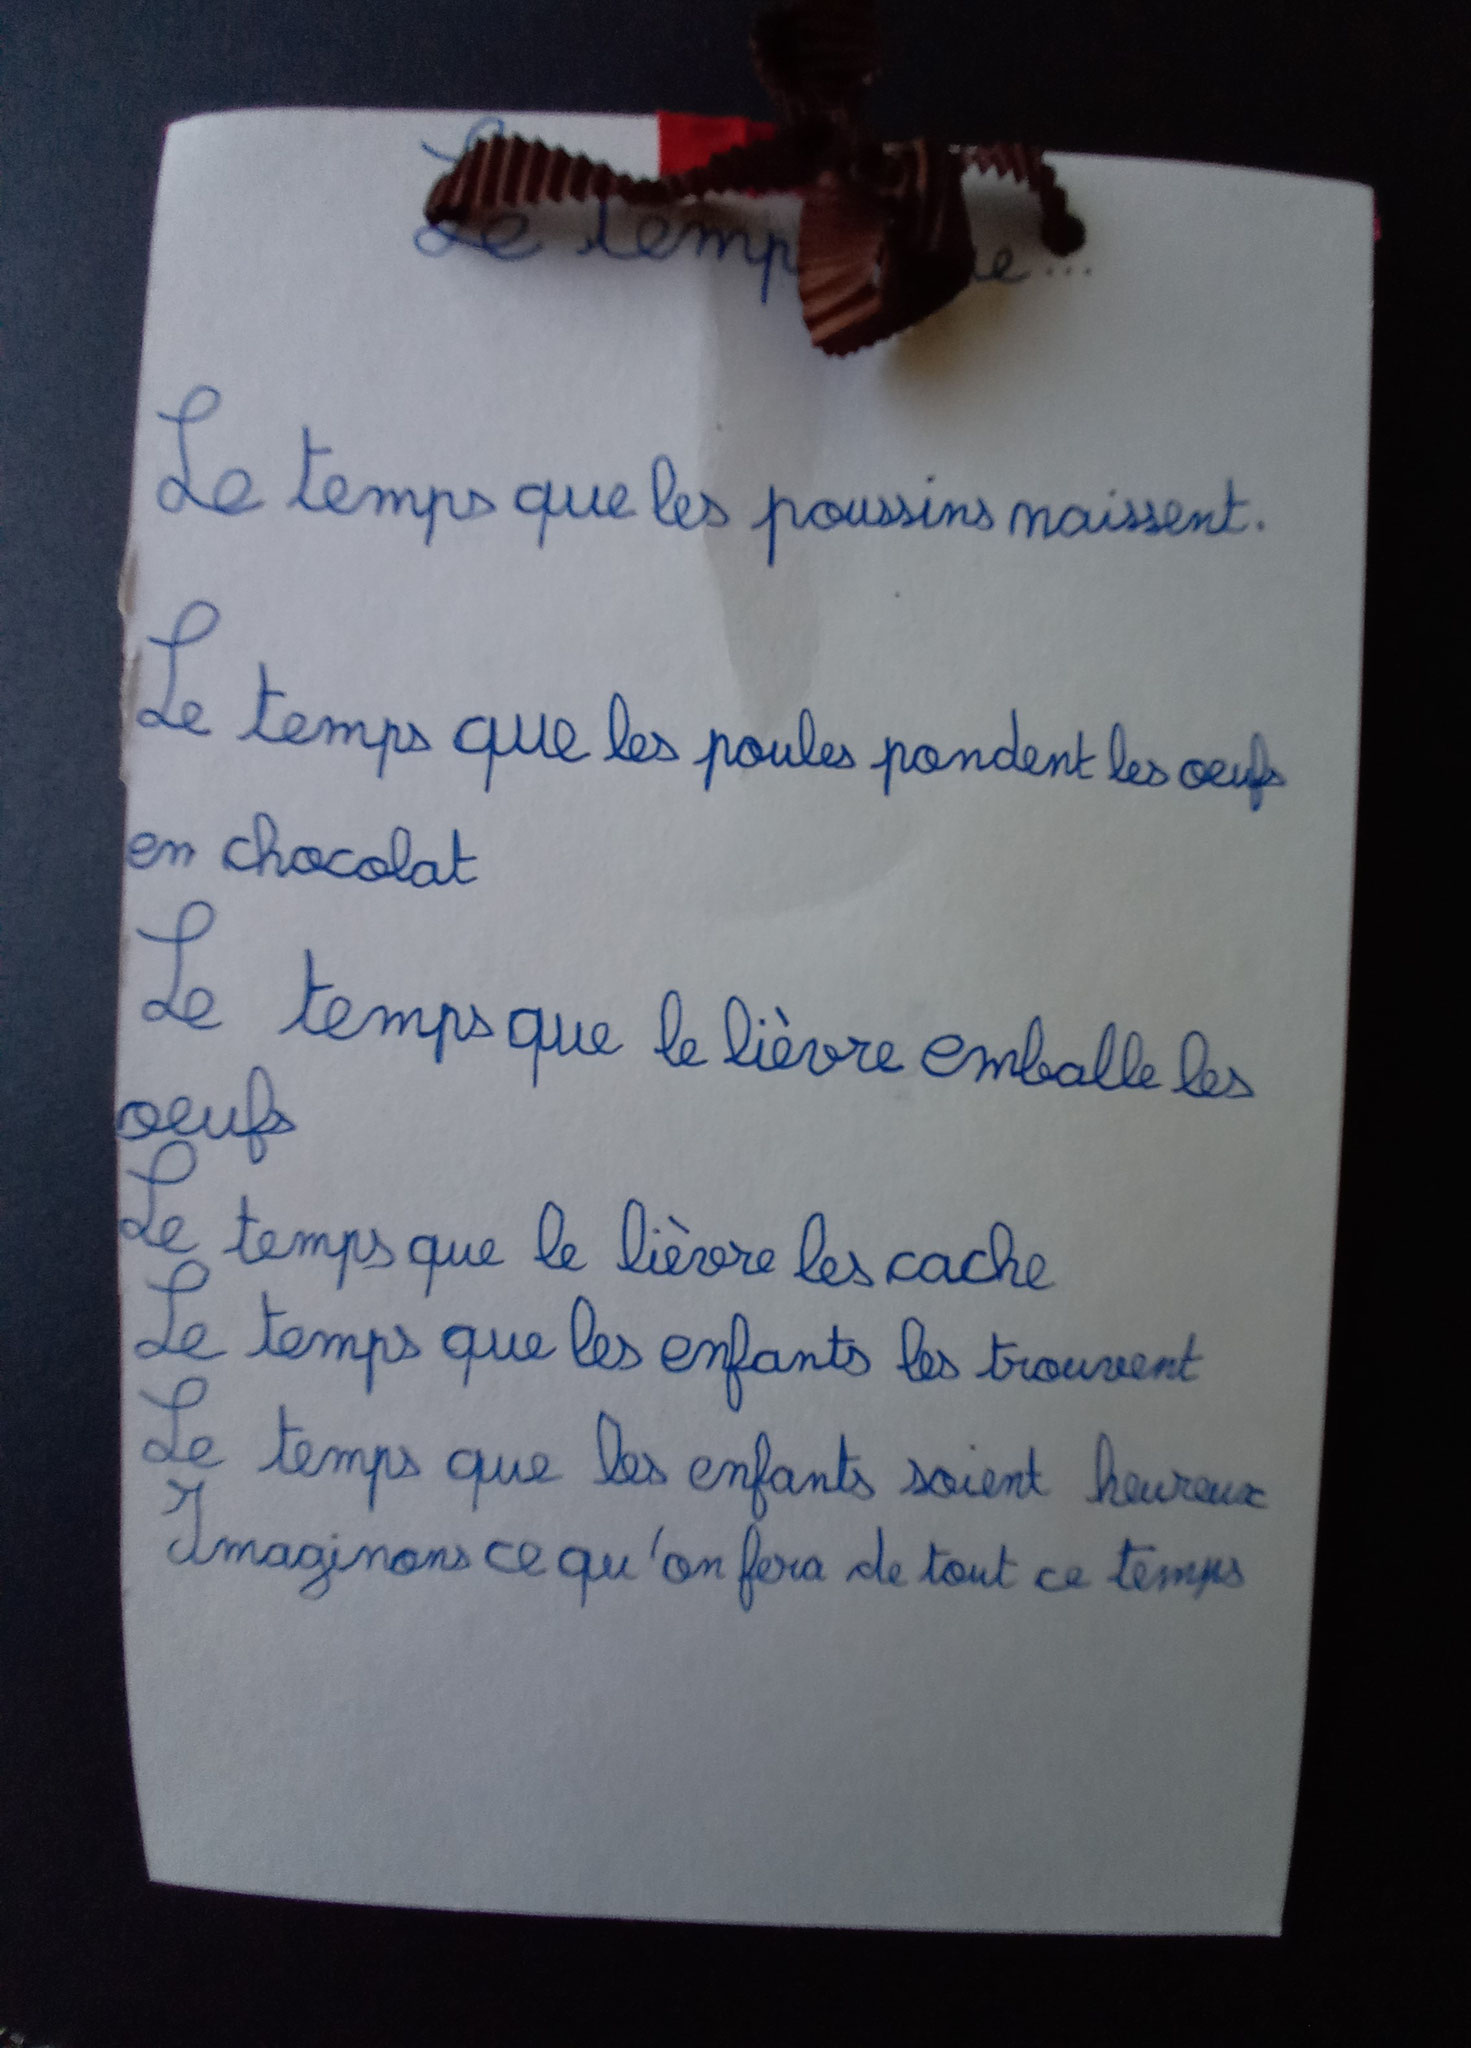 Le temp ue...
Le temps que les poussins naissent.
Le temps que les poules pondent les oeufs
en chocolat
Le temps que le lièvre emballe les
oeufs
Le temps que le lièvre les cache
Le temps que les enfants les trouvent
Le temps que les enfants soient heureux
Imaginons ce qu'on fera de tout ce temps